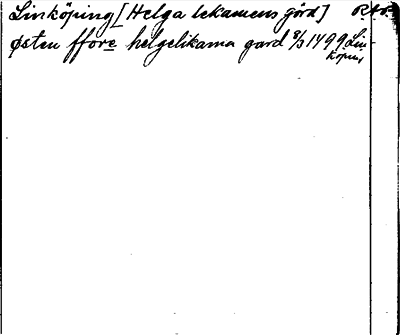 Linköping [Helga lekamens görd]
østen ffore helgelikama gard 8/3 1499 Lin-
köping